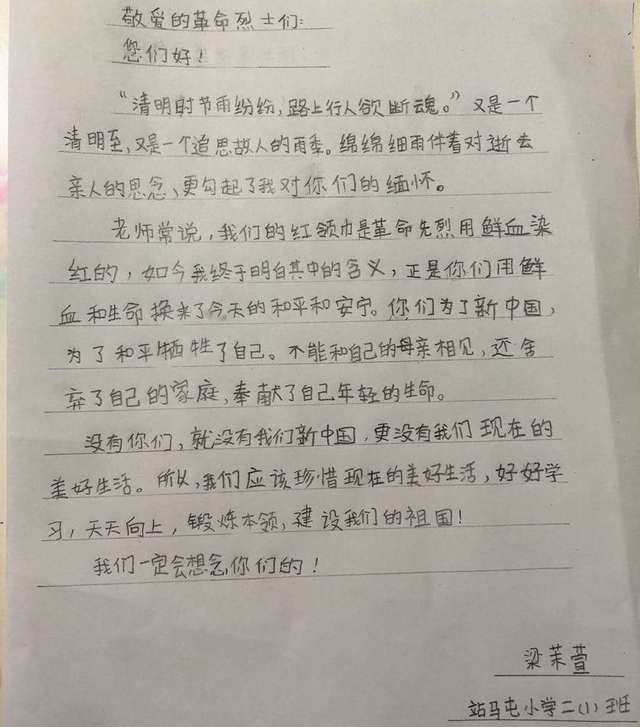 敬爱的革命烈士们:
您们好!
“清明时节雨纷纷,路上行人欲断魂。”又是一个
清明至,又是一个追思故人的雨季。绵绵细雨伴着对逝去
亲人的思念,更勾起了我对你们的缅怀。
老师常说,我们的红领巾是革命先烈用鲜血染
红的,如今我终于明白其中的含义,正是你们用鲜
血和生命换来了今天的和平和安宁。你们为了新中国,
为了和平牺牲了自己。不能和自己的母亲相见,还舍
弃了自己的家庭,奉献了自己年轻的生命。
没有你们,就没有我们新中国,更没有我们现在的
美好生活。所以,我们应该珍惜现在的美好生活,好好学
习,天天向上,锻炼本领,建设我们的祖国!
我们一定会想念你们的!
梁茉萱
站马屯小学二(1)班